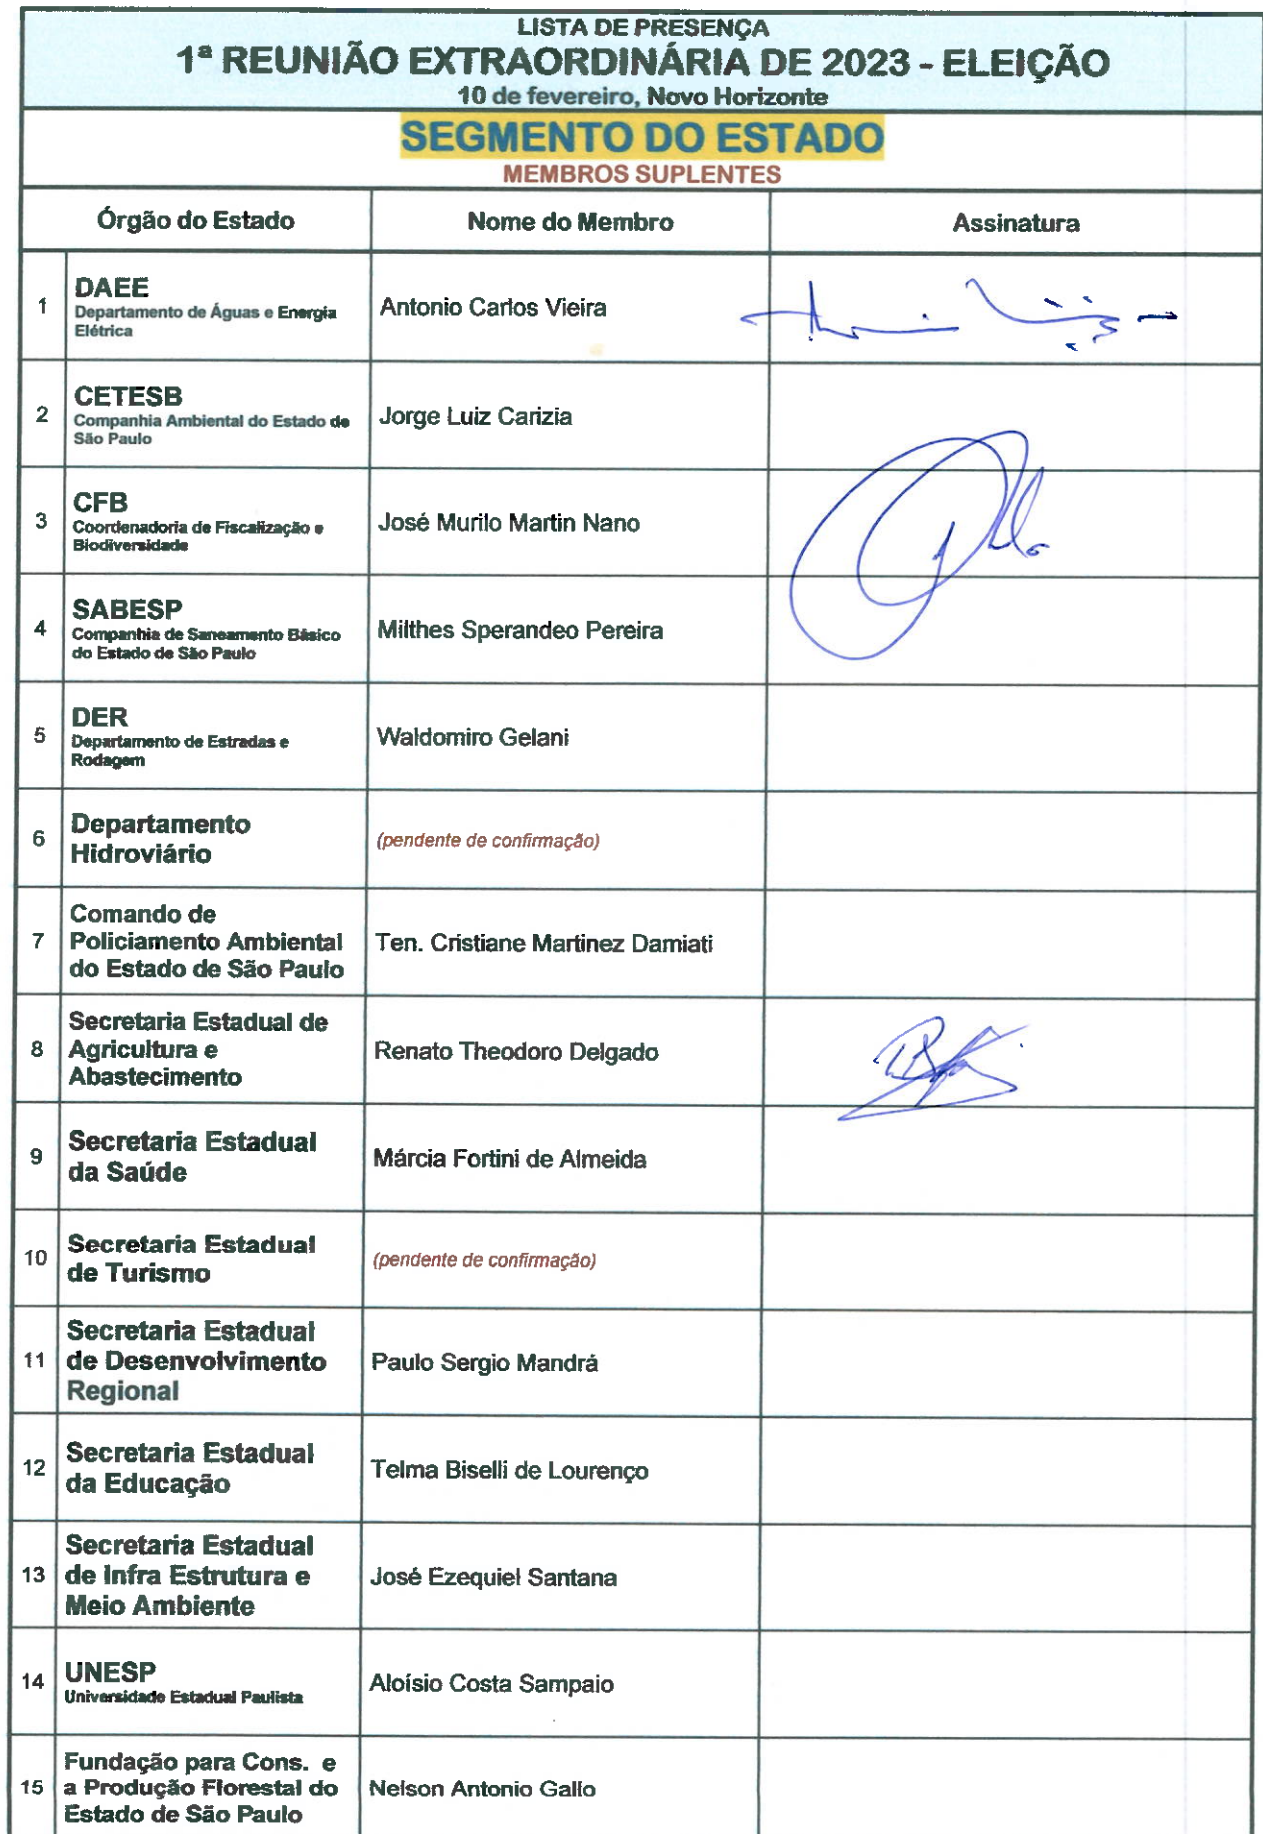 LISTA DE PRESENÇA
1ª REUNIÃO EXTRAORDINÁRIA DE 2023 - ELEIÇÃO
10 de fevereiro, Novo Horizonte
SEGMENTO DO ESTADO
MEMBROS SUPLENTES
Órgão do Estado Nome do Membro Assinatura
1 DAEE
Departamento de Águas e Energia
Elétrica
Antonio Carlos Vieira
2 CETESB
Companhia Ambiental do Estado de
São Paulo
Jorge Luiz Carizia
3 CFB
Coordenadoria de Fiscalização e
Biodiversidade
José Murilo Martin Nano
4 SABESP
Companhia de Saneamento Básico
do Estado de São Paulo
Milthes Sperandeo Pereira
5 DER
Departamento de Estradas e
Rodagem
Waldomiro Gelani
6 Departamento
Hidroviário
(pendente de confirmação)
7 Comando de
Policiamento Ambiental
do Estado de São Paulo
Ten. Cristiane Martinez Damiati
8 Secretaria Estadual de
Agricultura e
Abastecimento
Renato Theodoro Delgado
9 Secretaria Estadual
da Saúde
Márcia Fortini de Almeida
10 Secretaria Estadual
de Turismo
(pendente de confirmação)
11 Secretaria Estadual
de Desenvolvimento
Regional
Paulo Sergio Mandrá
12 Secretaria Estadual
da Educação
Telma Biselli de Lourenço
13 Secretaria Estadual
de Infra Estrutura e
Meio Ambiente
José Ezequiel Santana
14 UNESP
Universidade Estadual Paulista
Aloísio Costa Sampaio
15 Fundação para Cons. e
a Produção Florestal do
Estado de São Paulo
Nelson Antonio Gallo